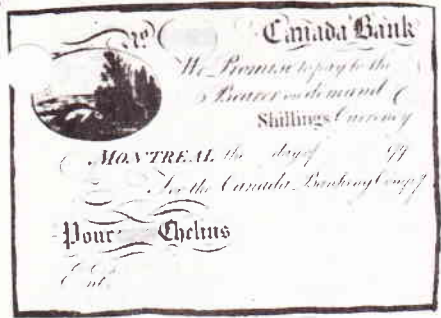 No Canada Bank
We Promise to pay to the
Bearer on demand
Shillings Currency
MONTREAL the day of 99
For the Canada Banking Compy
Pour Chelins
Entd